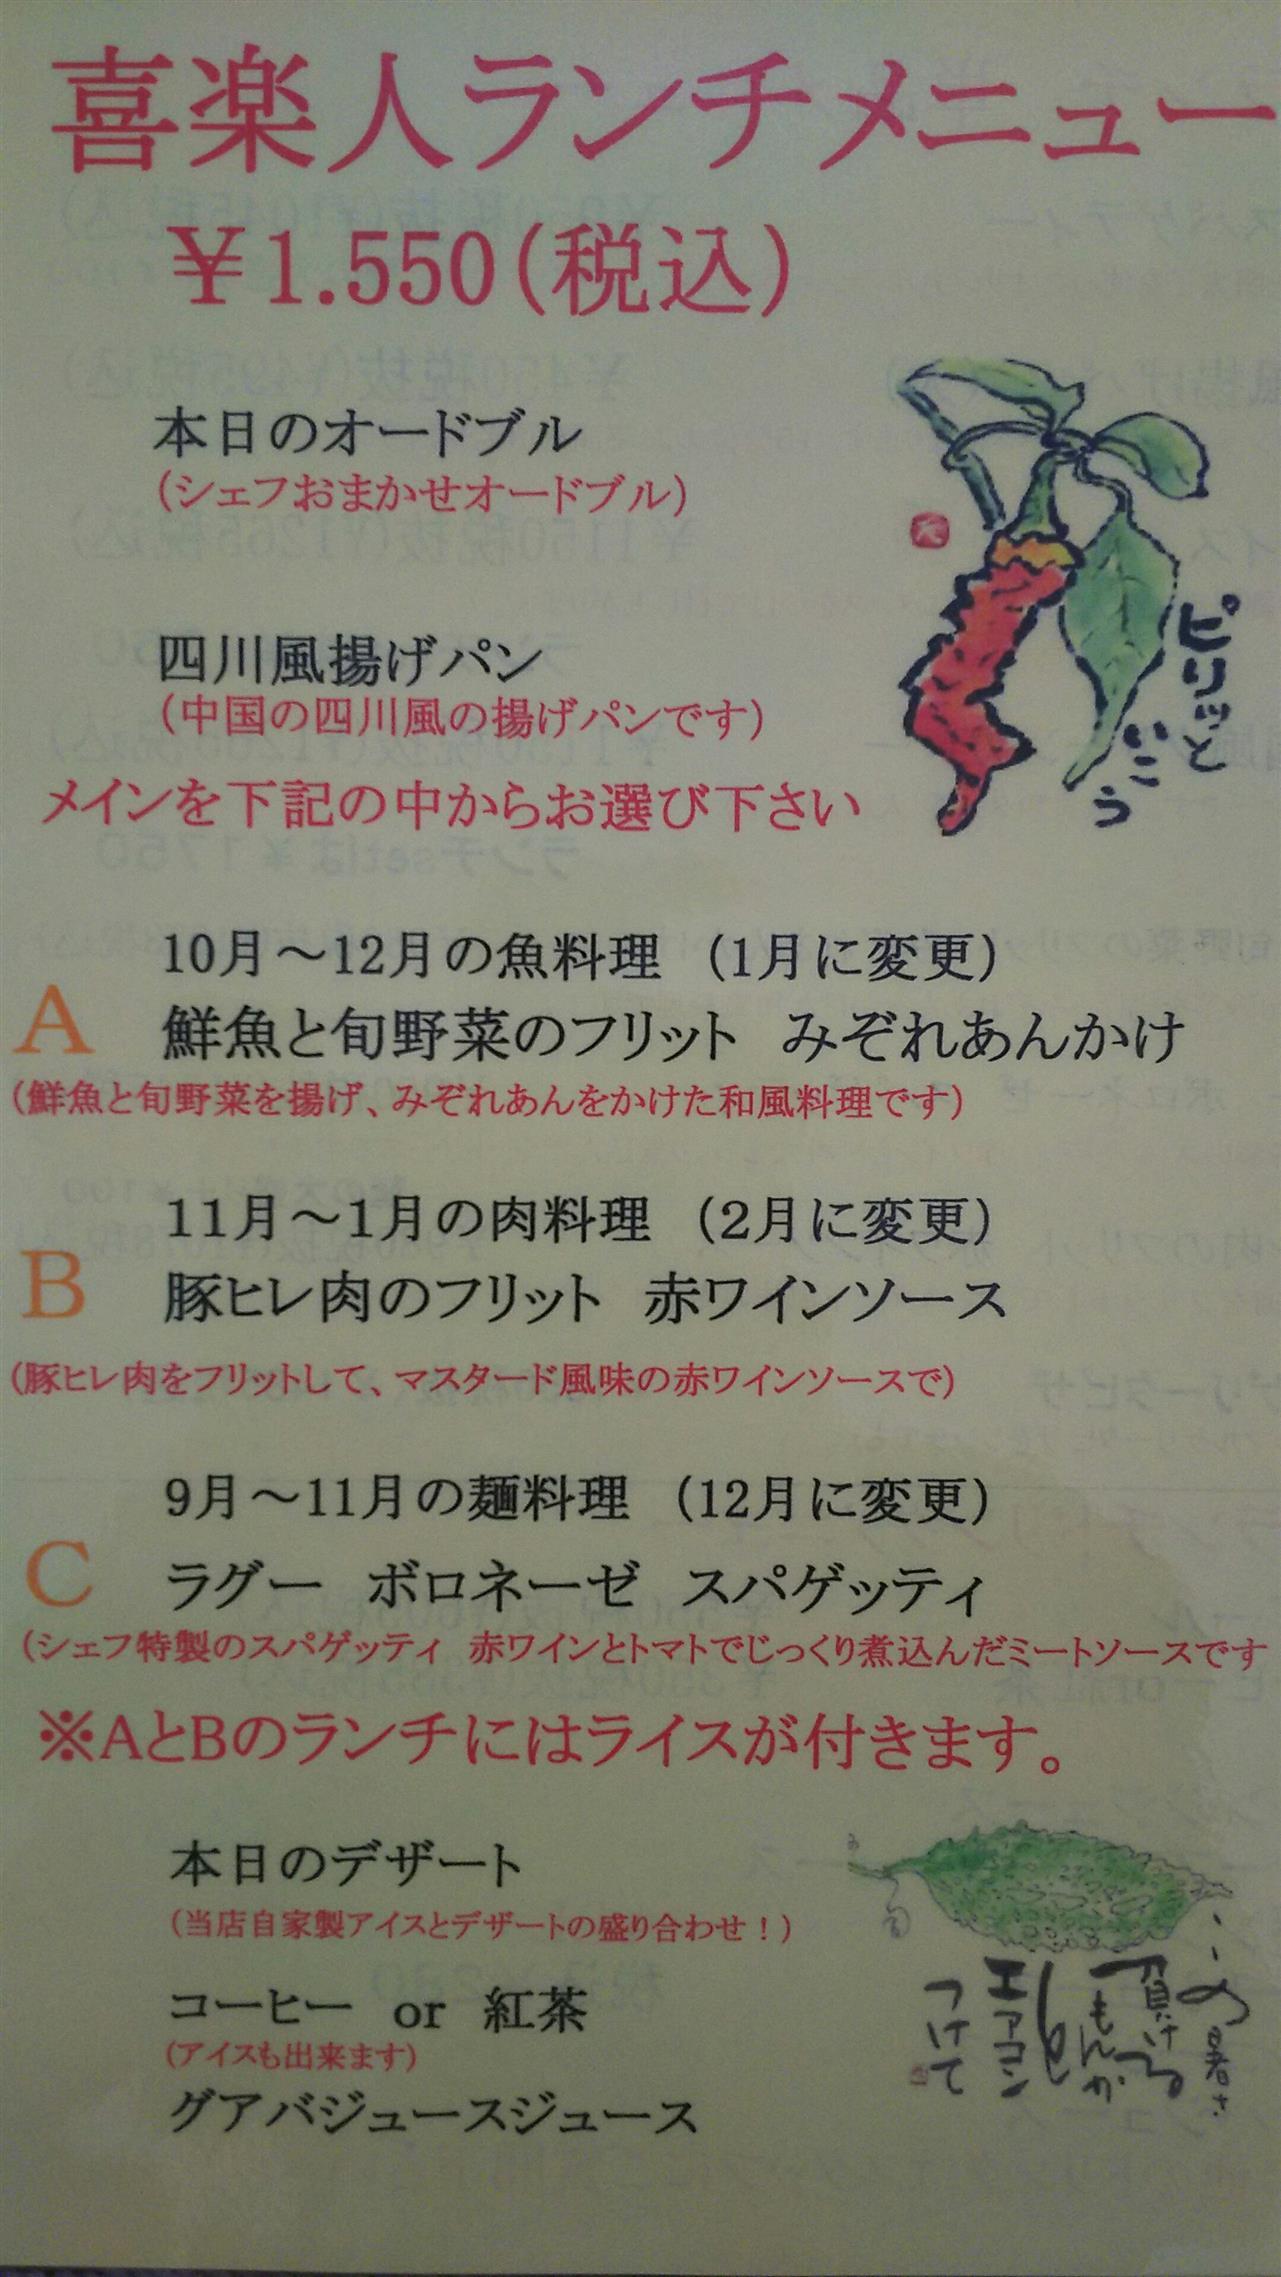 喜楽人ランチメニュー
￥1.550(税込)
本日のオードブル
(シェフおまかせオードブル)
四川風揚げパン
(中国の四川風の揚げパンです)
ピリッと
いこう
メインを下記の中からお選び下さい
10月～12月の魚料理 (1月に変更)
A 鮮魚と旬野菜のフリット みぞれあんかけ
(鮮魚と旬野菜を揚げ、みぞれあんをかけた和風料理です)
11月～1月の肉料理 (2月に変更)
B 豚ヒレ肉のフリット 赤ワインソース
(豚ヒレ肉をフリットして、マスタード風味の赤ワインソースで)
9月～11月の麺料理 (12月に変更)
C ラグー ボロネーゼ スパゲッティ
(シェフ特製のスパゲッティ 赤ワインとトマトでじっくり煮込んだミートソースです
※AとBのランチにはライスが付きます。
本日のデザート
(当店自家製アイスとデザートの盛り合わせ！)
コーヒー or 紅茶
(アイスも出来ます)
グアバジュースジュース
の暑さ
負ける
もんか
エアコン
つけて